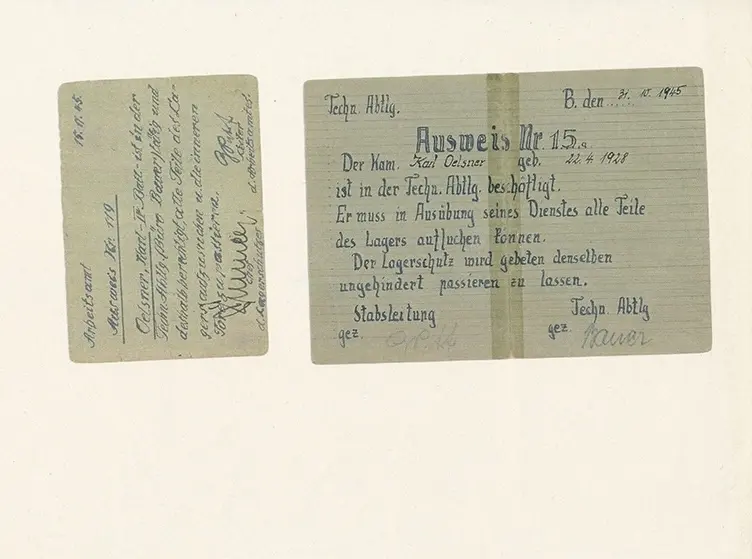 Arbeitsamt 15.9.45.
Ausweis Nr. 119
Oelsner, Karl - ist in der
Techn. Abtlg. (Büro Bauer) tätig und
deshalb berechtigt, alle Teile des La-
gers aufzusuchen u. die inneren
Tore zu passieren.
d. Lagerschutzes d. Arbeitsamtes.
Techn. Abtlg. B. den 31. 10. 1945
Ausweis Nr. 15.
Der Kam. Karl Oelsner geb. 22.4.1928
ist in der Techn. Abtlg. beschäftigt.
Er muss in Ausübung seines Dienstes alle Teile
des Lagers aufsuchen können.
Der Lagerschutz wird gebeten denselben
ungehindert passieren zu lassen.
Stabsleitung Techn. Abtlg
gez. gez. Bauer